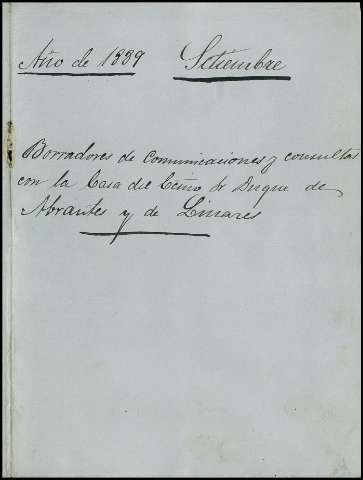 Año de 1889 Setiembre
Borradores de comunicaciones y consultas
con la Casa del Ecmo Sr Duque de
Abrantes y de Linares